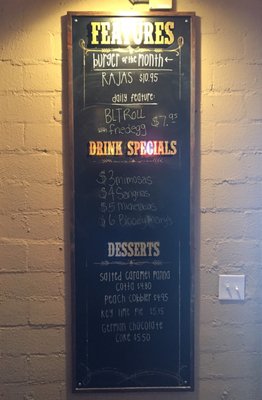 FEATURES
burger of the month ←
RAJAS $10.95
daily feature:
BLT Roll
with fried egg $7.95
DRINK SPECIALS
$3 mimosas
$4 Sangrias
$5 Micheladas
$6 Bloody Marys
DESSERTS
Salted Caramel Panna
Cotta $4.90
Peach Cobbler $4.95
Key Lime Pie $5.15
German Chocolate
Cake $5.50